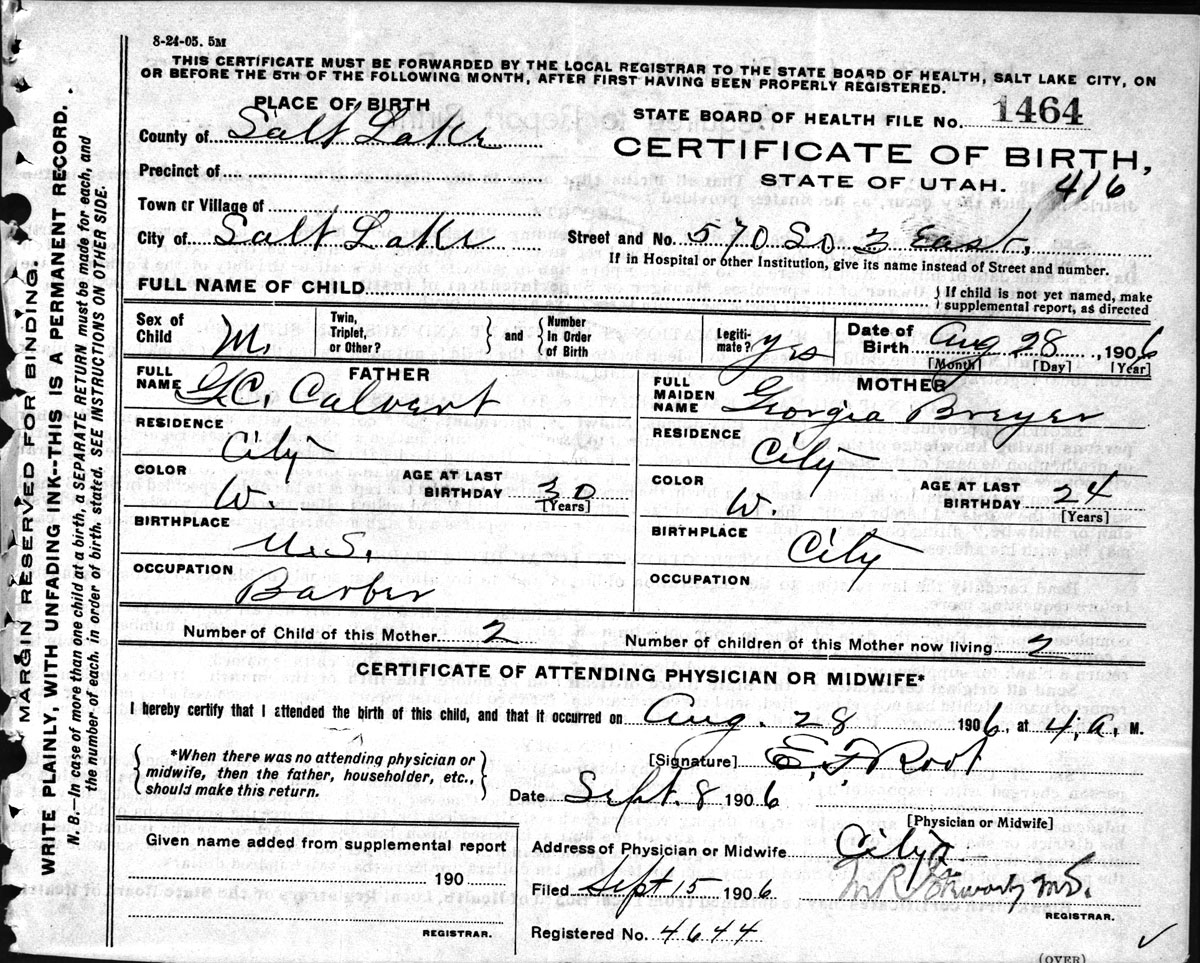 8-24-05. 5M
THIS CERTIFICATE MUST BE FORWARDED BY THE LOCAL REGISTRAR TO THE STATE BOARD OF HEALTH, SALT LAKE CITY, ON
OR BEFORE THE 5TH OF THE FOLLOWING MONTH, AFTER FIRST HAVING BEEN PROPERLY REGISTERED.
PLACE OF BIRTH
STATE BOARD OF HEALTH FILE No. 1464
County of Salt Lake
CERTIFICATE OF BIRTH,
Precinct of
STATE OF UTAH. 416
Town or Village of
City of Salt Lake Street and No. 570 So 3 East.
If in Hospital or other Institution, give its name instead of Street and number.
FULL NAME OF CHILD
{ If child is not yet named, make
supplemental report, as directed
Sex of Child M. Twin, Triplet, or Other? } and { Number In Order of Birth Legiti- mate? yes Date of Birth Aug 28, 1906
[Month] [Day] [Year]
FATHER
FULL NAME G.C. Calvert
RESIDENCE
City
COLOR W. AGE AT LAST BIRTHDAY 30
[Years]
BIRTHPLACE
U.S.
OCCUPATION
Barber
MOTHER
FULL MAIDEN NAME Georgia Breyer
RESIDENCE
City
COLOR W. AGE AT LAST BIRTHDAY 24
[Years]
BIRTHPLACE
City
OCCUPATION
Number of Child of this Mother 2 Number of children of this Mother now living 2
CERTIFICATE OF ATTENDING PHYSICIAN OR MIDWIFE*
I hereby certify that I attended the birth of this child, and that it occurred on Aug. 28 1906, at 4, a, M.
{ *When there was no attending physician or
midwife, then the father, householder, etc.,
should make this return. }
[Signature] E. F. Root
Date Sept. 8 1906
[Physician or Midwife]
Given name added from supplemental report
190
REGISTRAR.
Address of Physician or Midwife City
Filed Sept 15 1906
M.D.
REGISTRAR.
Registered No. 4644
(OVER)
MARGIN RESERVED FOR BINDING.
WRITE PLAINLY, WITH UNFADING INK--THIS IS A PERMANENT RECORD.
N. B.—In case of more than one child at a birth, a SEPARATE RETURN must be made for each, and
the number of each, in order of birth, stated. SEE INSTRUCTIONS ON OTHER SIDE.